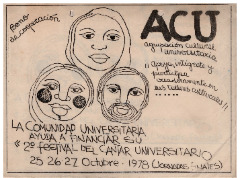 Bono
de cooperación
ACU
agrupación cultural
universitaria
¡¡ Apoya, intégrate y
participa
en sus talleres culturales!!
LA COMUNIDAD UNIVERSITARIA
AYUDA A FINANCIAR SU
2º FESTIVAL DEL CANTAR UNIVERSITARIO
25 26 27 Octubre - 1978